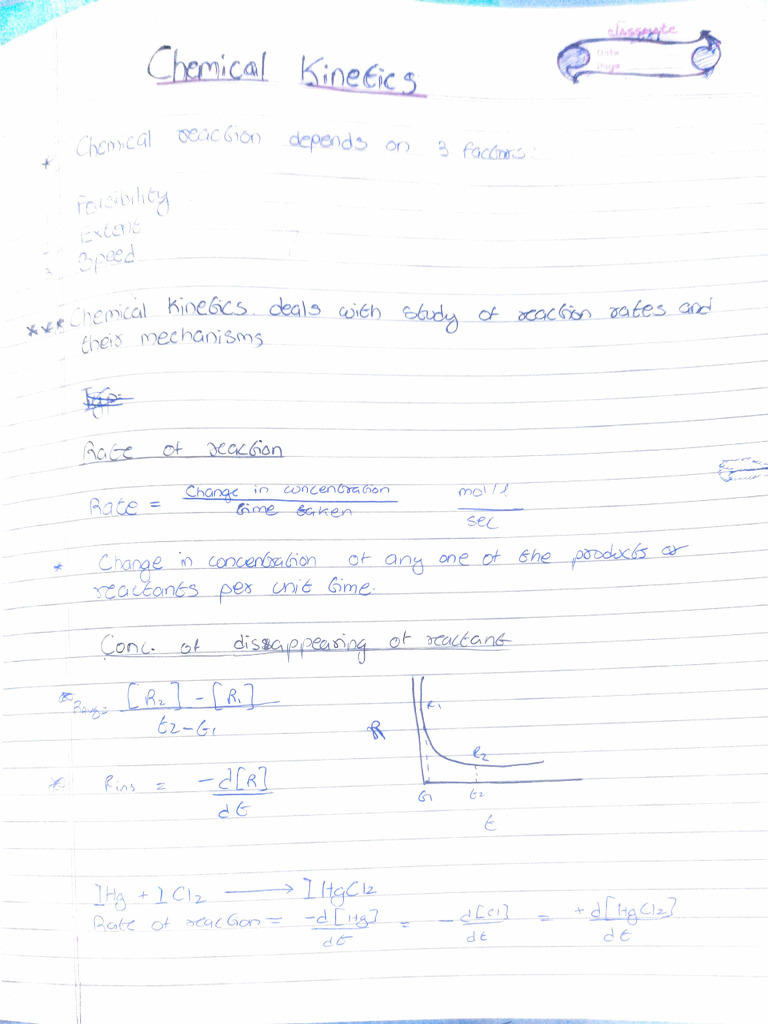 classmate
Date
Page
Chemical Kinetics
* Chemical reaction depends on 3 factors:
Feisibility
Extent
Speed
*** Chemical Kinetics deals with study of reaction rates and
their mechanisms
Rate of reaction
Rate = Change in concentration / time taken    mol/l / sec
* Change in concentration of any one of the products or
reactants per unit time.
Conc. of dissappearing of reactant
* Ravg = [R2] - [R1] / t2-t1
* Rins = -d[R] / dt
R
R1
R2
t1 t2
t
1Hg + 1Cl2 ⟶ 1HgCl2
Rate of reaction = -d[Hg] / dt = -d[Cl] / dt = +d[HgCl2] / dt